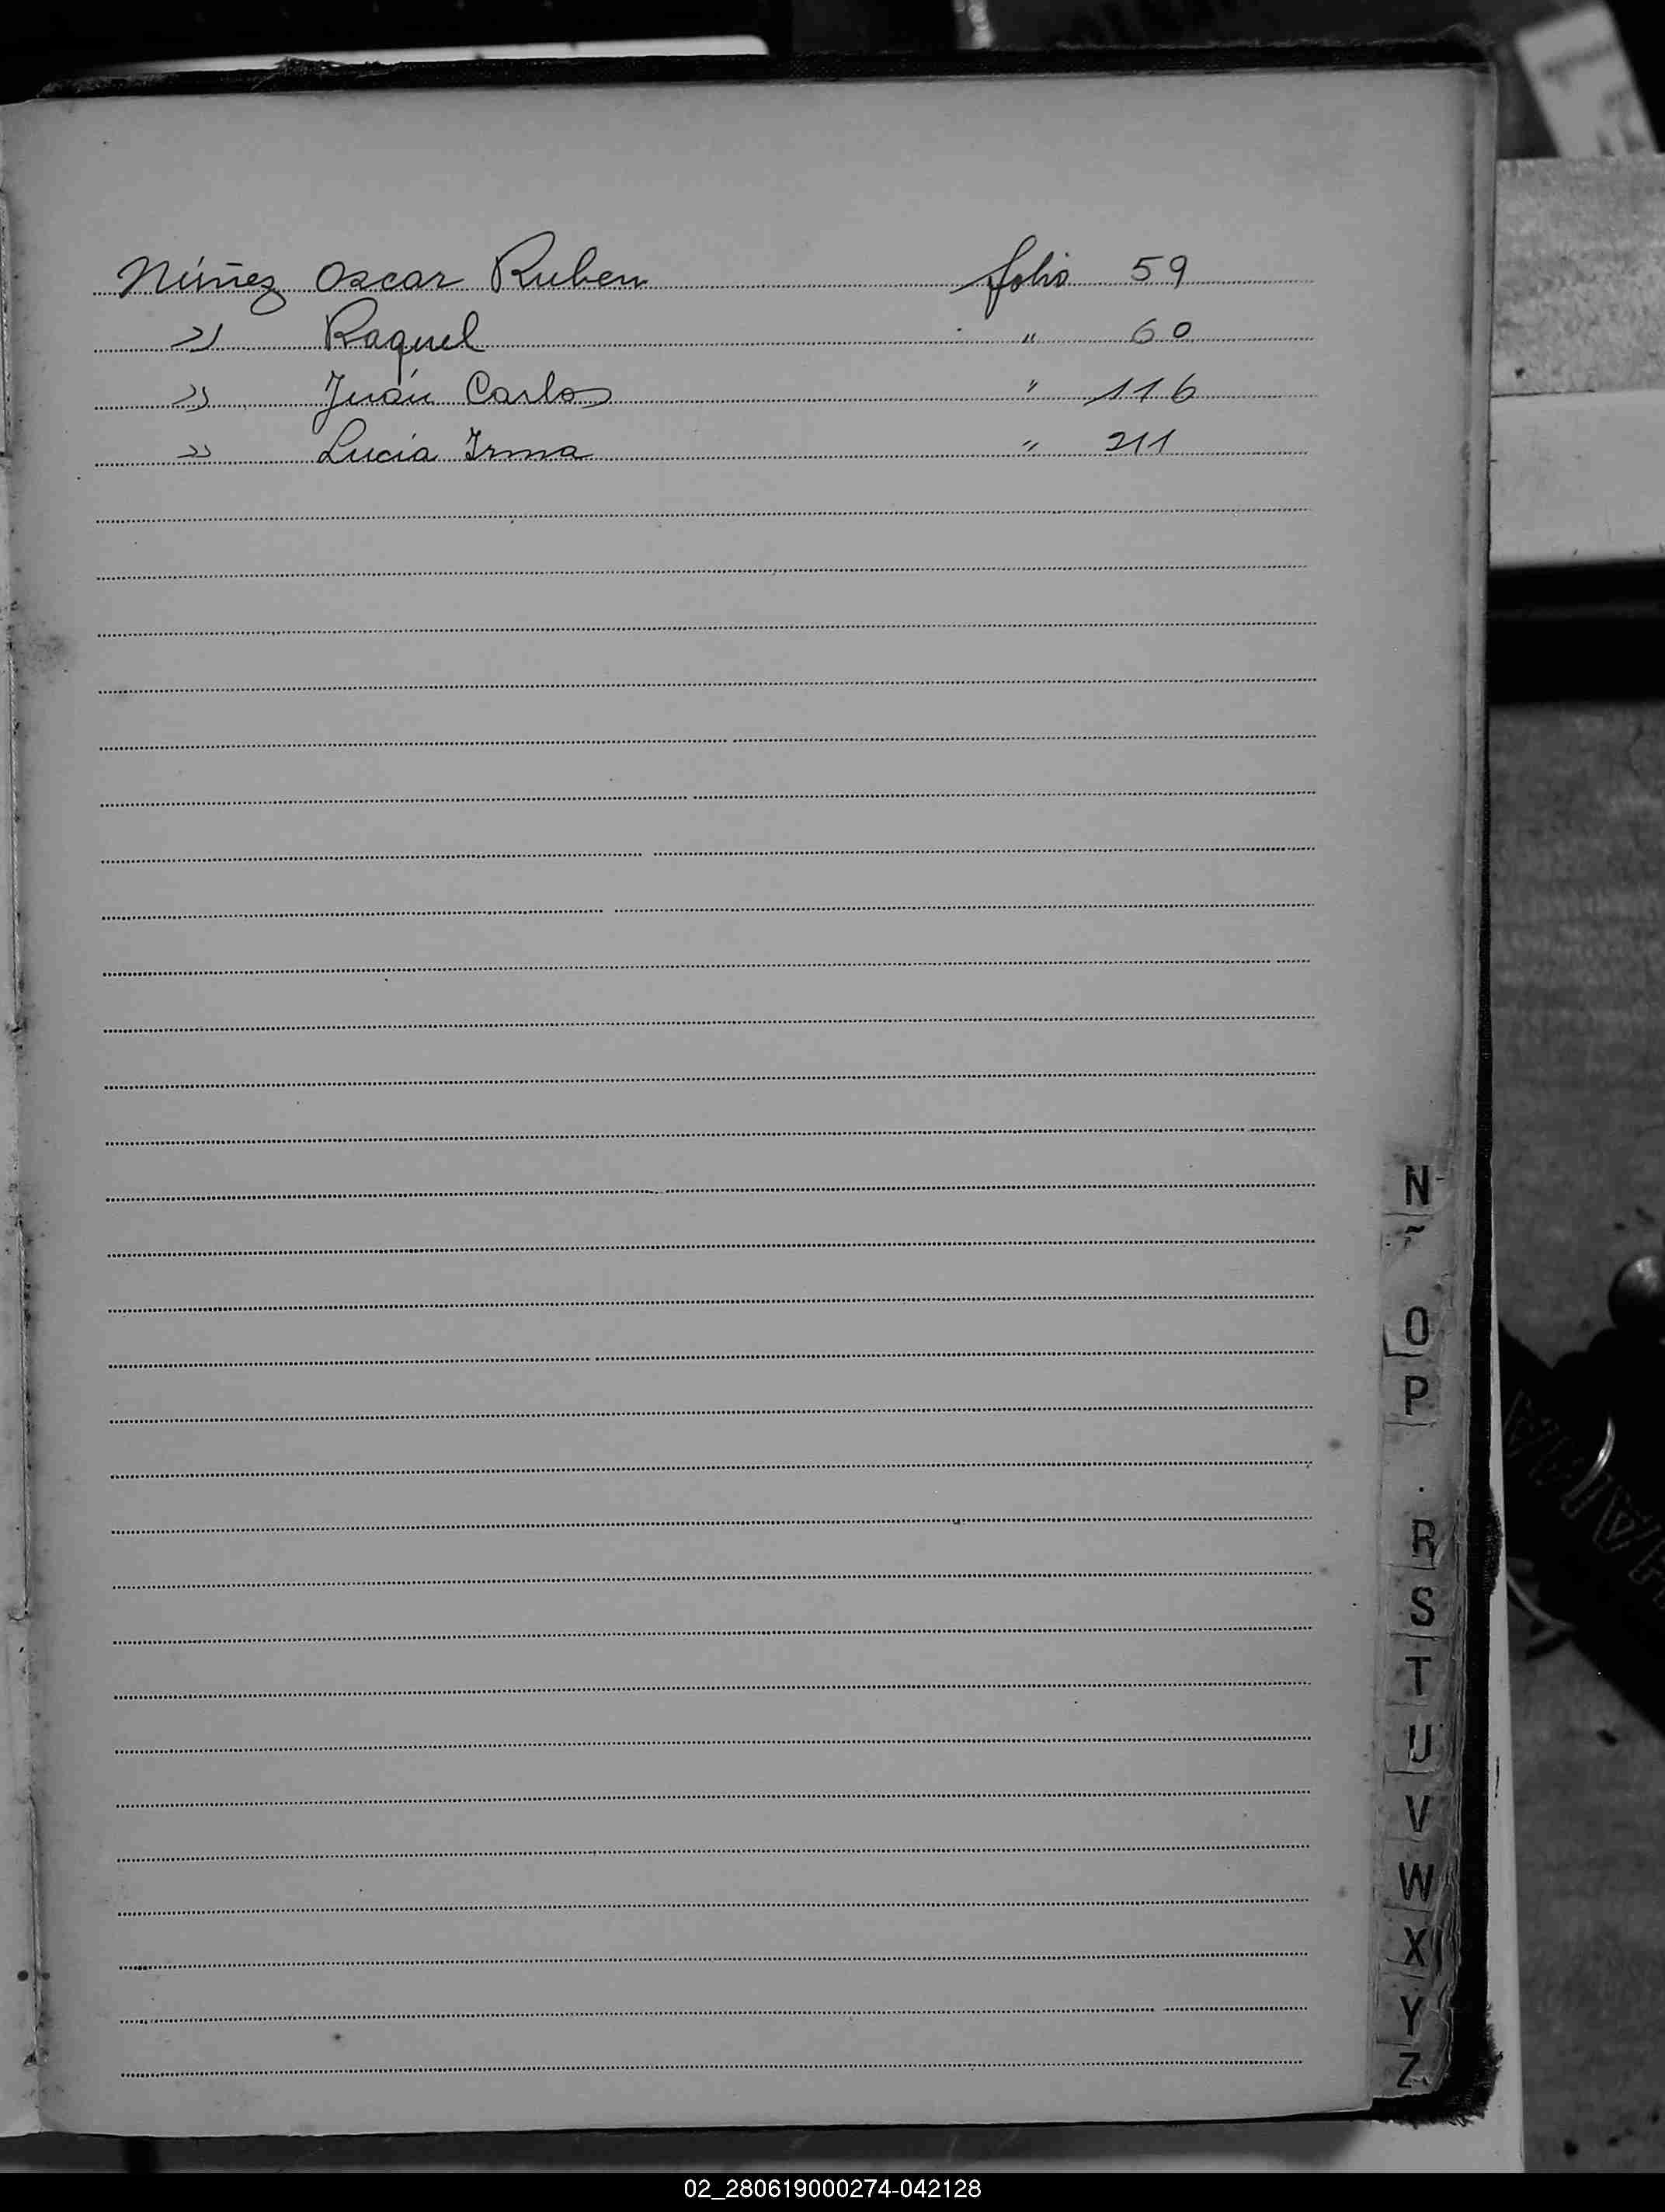 Núñez Oscar Ruben folio 59
" Raquel " 60
" Juán Carlos " 116
" Lucía Irma " 211
N
O
P
R
S
T
U
V
W
X
Y
Z
02_280619000274-042128